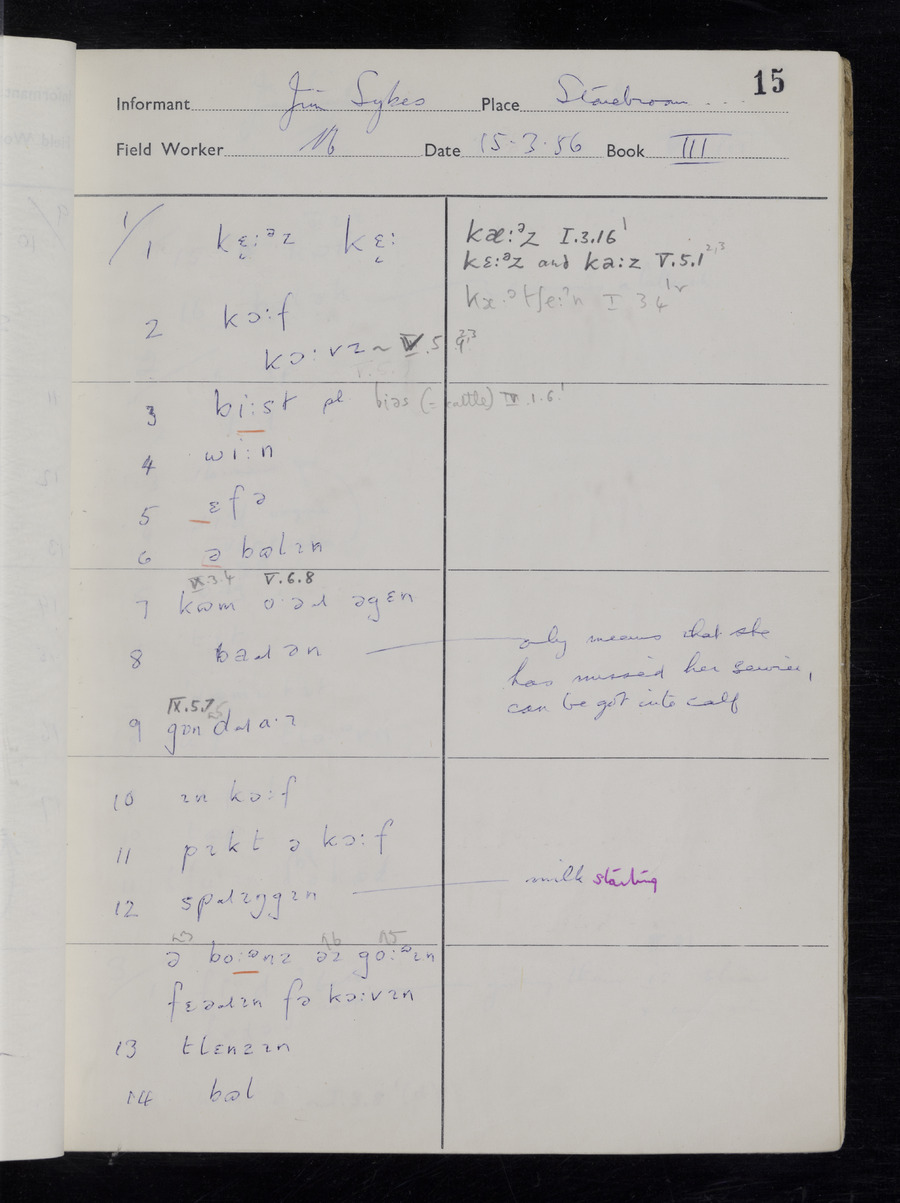 15
Informant Jim Sykes Place Stonebroom
Field Worker Date 15.3.56 Book III
1/1 kɛ̣:ᵊz kɛ̣:
kæ:ᵊz I.3.16¹
kɛ:ᵊz and ka:z V.5.1²,³
2 kɔ:f
kɔ:vz ~ V.5.9²,³
3 bi:st pl bias (= cattle) IV.1.6¹
4 wi:n
5 ɛfə
6 ə bʊlɪn
IX.3.4 V.6.8
7 kʊm o·əɹ əgɛn
8 baɹən
only means that she
has missed her service,
can be got into calf
IX.5.7
9 gɒn dɹa·ɪ
10 ɪn kɔ:f
11 pɪkt ə kɔ:f
12 spɹɪŋgɪn
milk starting
ə bo:ᵊnz əz go:ᵊɪn
fɛəɹɪn fə kɔ:vɪn
13 tlɛnzɪn
14 bʊl